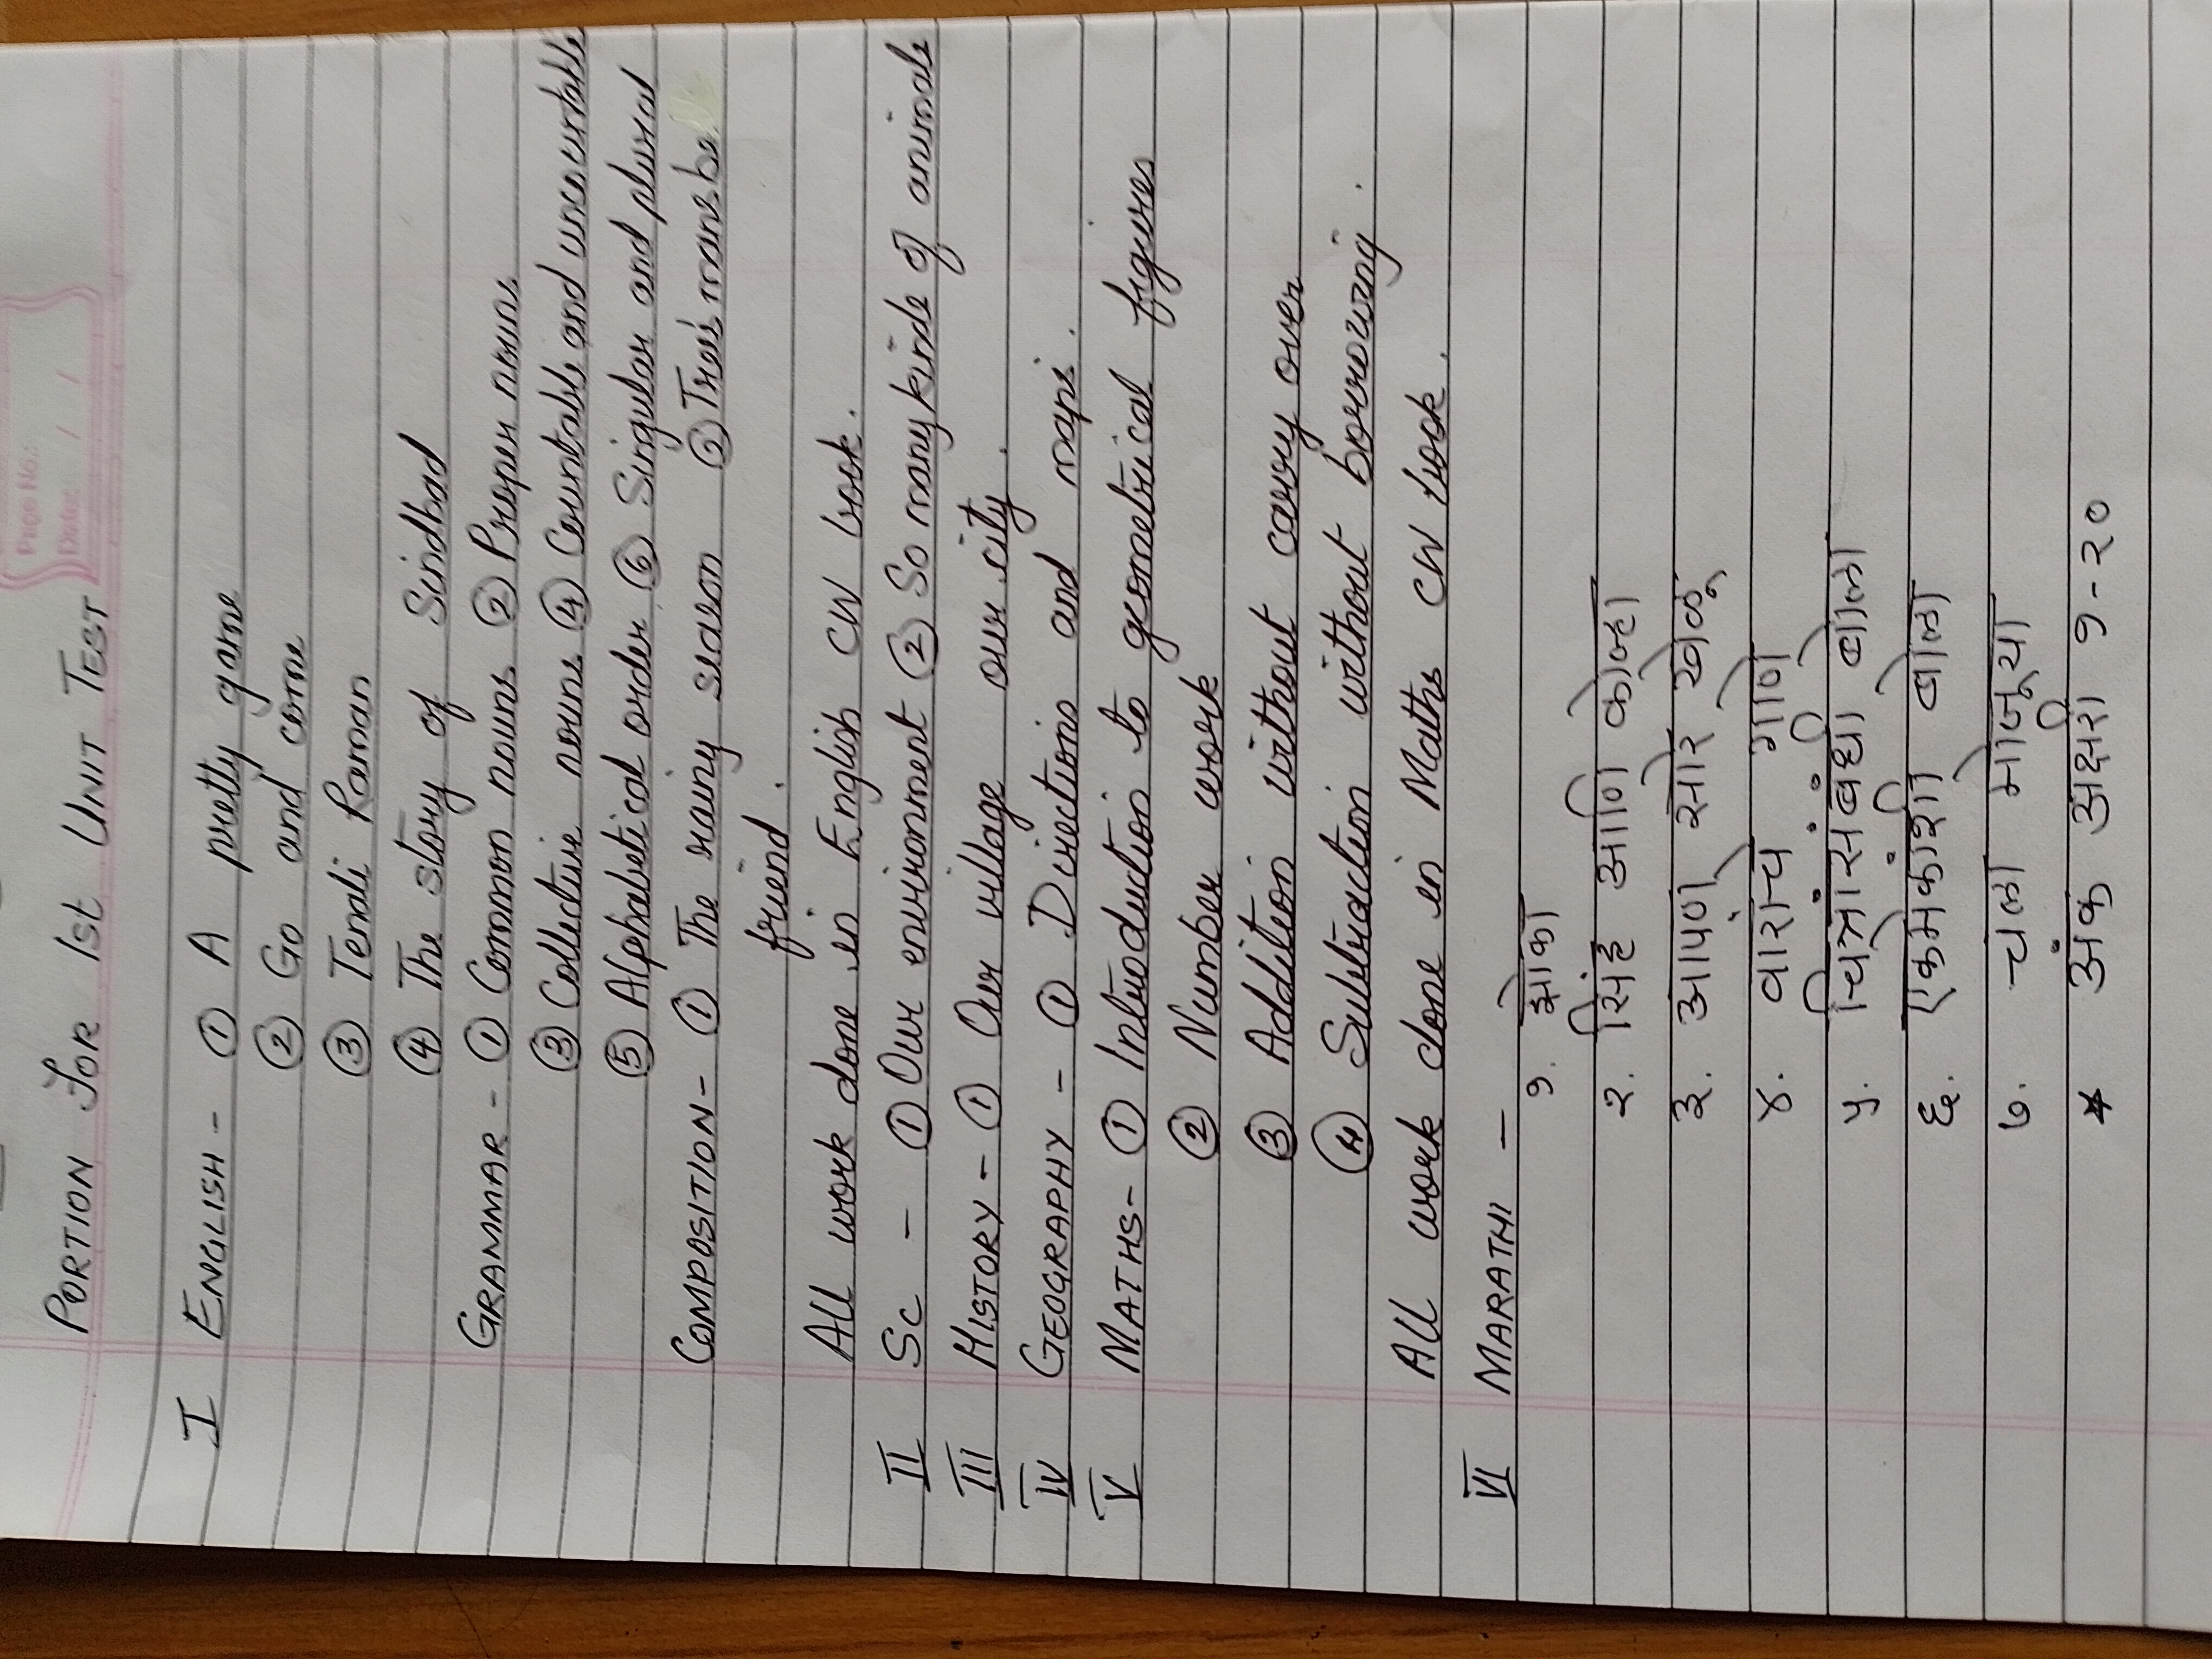 Page No.:
Date: / /
PORTION FOR 1st UNIT TEST
I ENGLISH - ① A pretty game
② Go and come
③ Tenali Raman
④ The story of Sindbad
GRAMMAR - ① Common nouns ② Proper nouns
③ Collective nouns ④ Countable and uncountable
⑤ Alphabetical order ⑥ Singular and plural
COMPOSITION - ① The rainy season ② Trees mans be
friend.
All work done in English CW book.
II Sc - ① Our environment ② So many kinds of animals
III HISTORY - ① Our village our city.
IV GEOGRAPHY - ① Directions and maps.
V MATHS - ① Introduction to geometrical figures
② Number work
③ Addition without carry over
④ Subtraction without borrowing.
All work done in Maths CW book.
VI MARATHI -
१. झोका
२. सिंह आणि कोल्हा
३. आपण सारे खेळू
४. वाऱ्याचे गाणे
५. चित्रासंबंधी बोला
६. एकमेकांशी बोला
७. चला मोजूया
* अंक अक्षरी १-२०